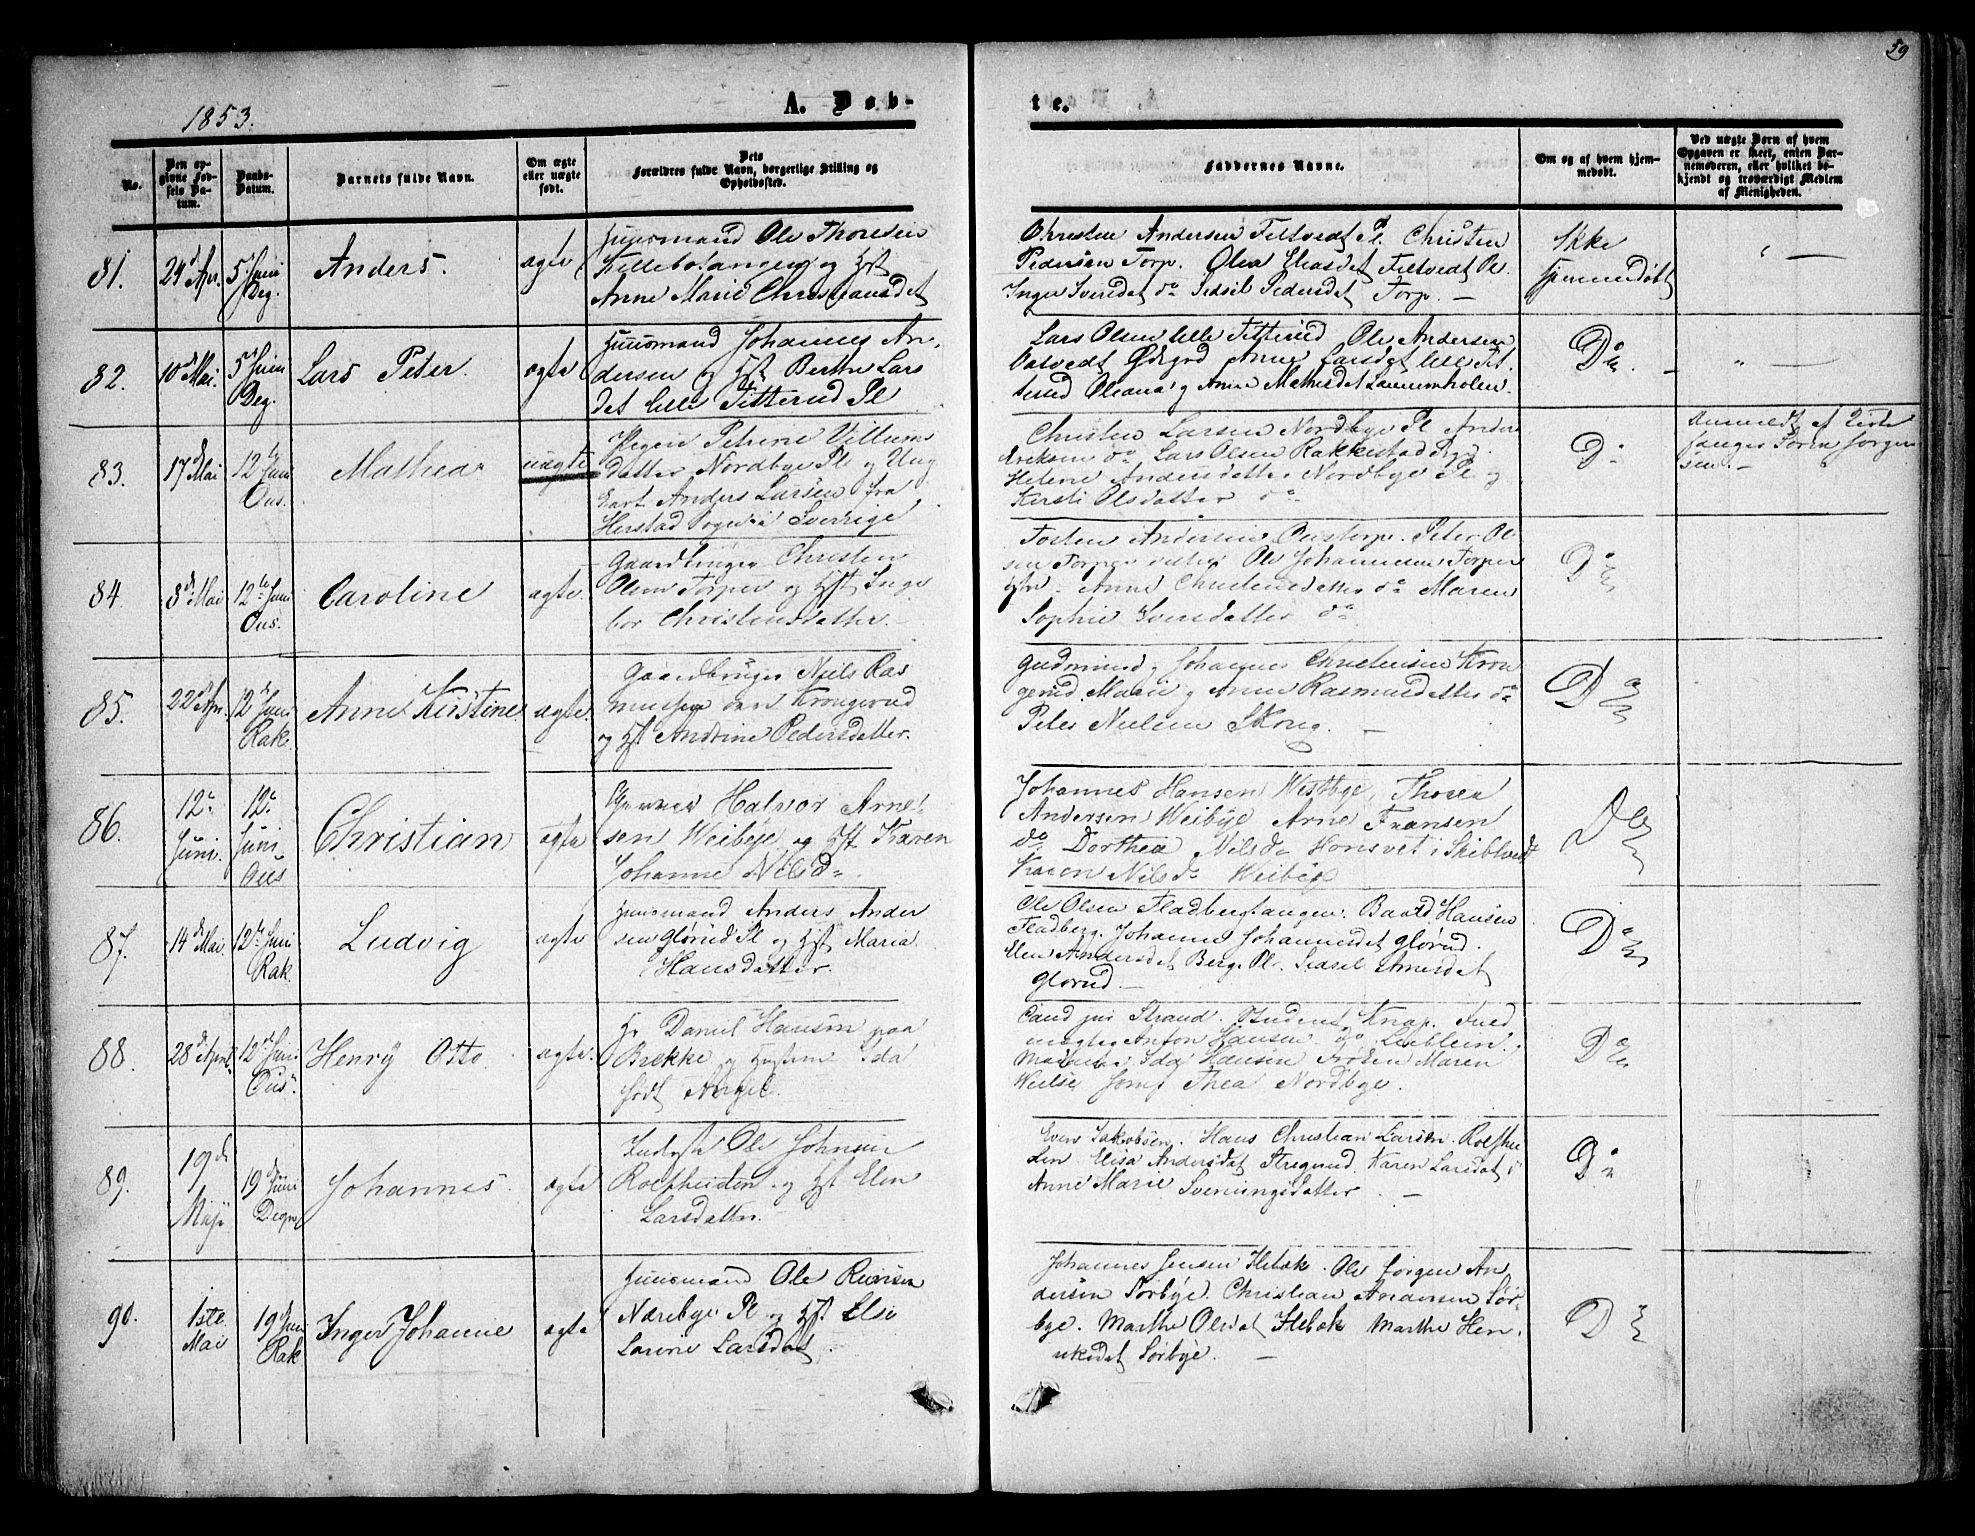 59
1853.
A. Døb-
te.
No.
Den op-
givne Fød-
sels Da-
tum.
Daabs-
Datum.
Barnets fulde Navn.
Om ægte
eller uægte
født.
Dets
Forældres fulde Navn, borgerlige Stilling og
Opholdssted.
Faddernes Navne.
Om og af hvem hjem-
medøbt.
Ved uægte Børn af hvem
Opgaven er skeet, enten Bar-
nemoderen, eller hvilket be-
kjendt og troværdigt Medlem
af Menigheden.
81.
24 Apr.
5 Juni
Deg.
Anders.
ægte
Huusmand Ole Thoresen
og Hst
Anne Marie Christiansdet
Christen Andersen Feltvedt Pl. Christen
Pedersen Torp. Olea Eliasdet Feltvedt Pl.
Inger Iversdet do Sidsel Pedersdet Torp. —
Ikke
hjemmedøbt
" —
82.
10 Mai.
5 Juni
Deg.
Lars Peter.
ægte
Huusmand Johannes An-
dersen og Hst Berthe Lars
det lille Titterud Pl
Lars Olsen lille Titterud Ole Andersen
Ødegrd Anne Larsdet lille Tit-
terud Oleana og Anne Mathisdet
Do
" —
83.
17 Mai
12 Juni
Ous.
Mathea
uægte
Pigen Petrine Villums
datter Nordbye Pl og Ung
karl Anders Larsen fra
Herstad Sogn i Sverrige
Christen Larsen Nordbye Pl Anders
Eriksen do Lars Olsen Rakkestad Prgd.
Helene Andersdatter Nordbye Pl og
Kersti Olsdatter do
Do
Anmeldt af
Søren Jørgen
sen. —
84.
8 Mai
12 Juni
Ous.
Caroline
ægte.
Gaardbruger Christen
Olsen Torper og Hst Inge
bor Christensdatter. —
Tosten Andersen Oustorp. Peter Ol
sen Torper Ole Johannesen Torper
Anne Christensdatter do Maren
Sophie Iversdatter do
Do
85.
22 Apr.
12 Juni
Rak.
Anne Kirstine
ægte.
Gaardbruger Niels Ras
mussen Krongerud
og Hst Andrine Pedersdatter.
Gudmund og Johannes Christensen Kron
gerud Marie og Anne Rasmusdatter do
Peter Nielsen Skoug. —
Do
86.
12
Juni.
12
Juni
Ous
Christian
ægte
Halvor Arne-
sen Weibye og Hst Karen
Johanne Nilsd.
Johannes Hansen Westbye, Thorea
Andersen Weibye Arne Fransen
do Dorthea Nilsd. Honsvet i Skibtvedt
Karen Nilsd. Weibye
Do
87.
14 Mai
12 Juni
Rak
Ludvig
ægte
Huusmand Anders Ander
sen Glørud Pl og Hst Maria
Hansdatter.
Ole Olsen Fladbergtangen. Baard Hansen
Fladberg. Johanne Johannesdet Glørud.
Elen Andersdet Berg. Pl. Sidsel Arnesdet
Glørud. —
Do
88.
28 April
12 Juni
Ous
Henry Otto
ægte.
Hr Daniel Hansen paa
Brekke og Hustru Ida
født
Cand jur Strand. Student Knap. Fuld
mægtig Anton Hansen do Lieblein.
Ida Hansen Frøken Maren
Thea Nordbye.
Do
89.
19
Maji
19 Juni
Degn
Johannes.
ægte
Inderst Ole Johnsen
og Hst Elen
Larsdatter.
Even Jakobsen. Hans Christian Larsen
Elisa Andersdet Karen Larsdet
Anne Marie Sveningsdatter. —
Do
90.
1ste
Mai
19 Juni
Rak
Inger Johanne
ægte
Huusmand Ole
Nærebye Pl og Hst Elsi
Larine Larsdat.
Johannes Jensen Hebæk. Ole Jørgen An
dersen Sørbye. Christian Andersen Sør-
bye. Marthe Olsdat Hebæk Marthe Hen-
rikedet Sørbye. —
Do